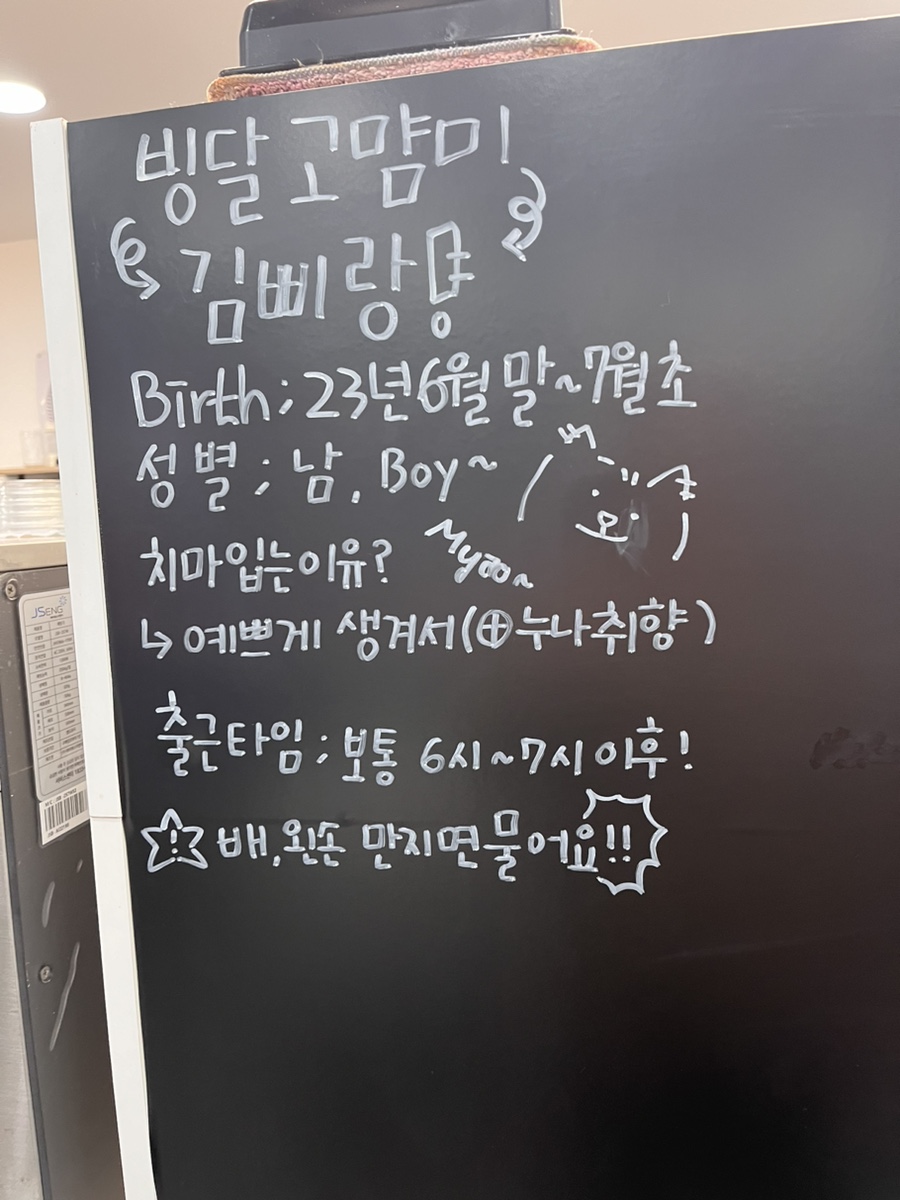 빙달 고먐미
김삐랑
Birth; 23년 6월 말~7월 초
성별; 남, Boy~
Myao~
치마입는이유?
↳ 예쁘게 생겨서(⊕누나취향)
출근타임; 보통 6시~7시 이후!
☆! 배, 왼손 만지면 물어요!!
JSENG